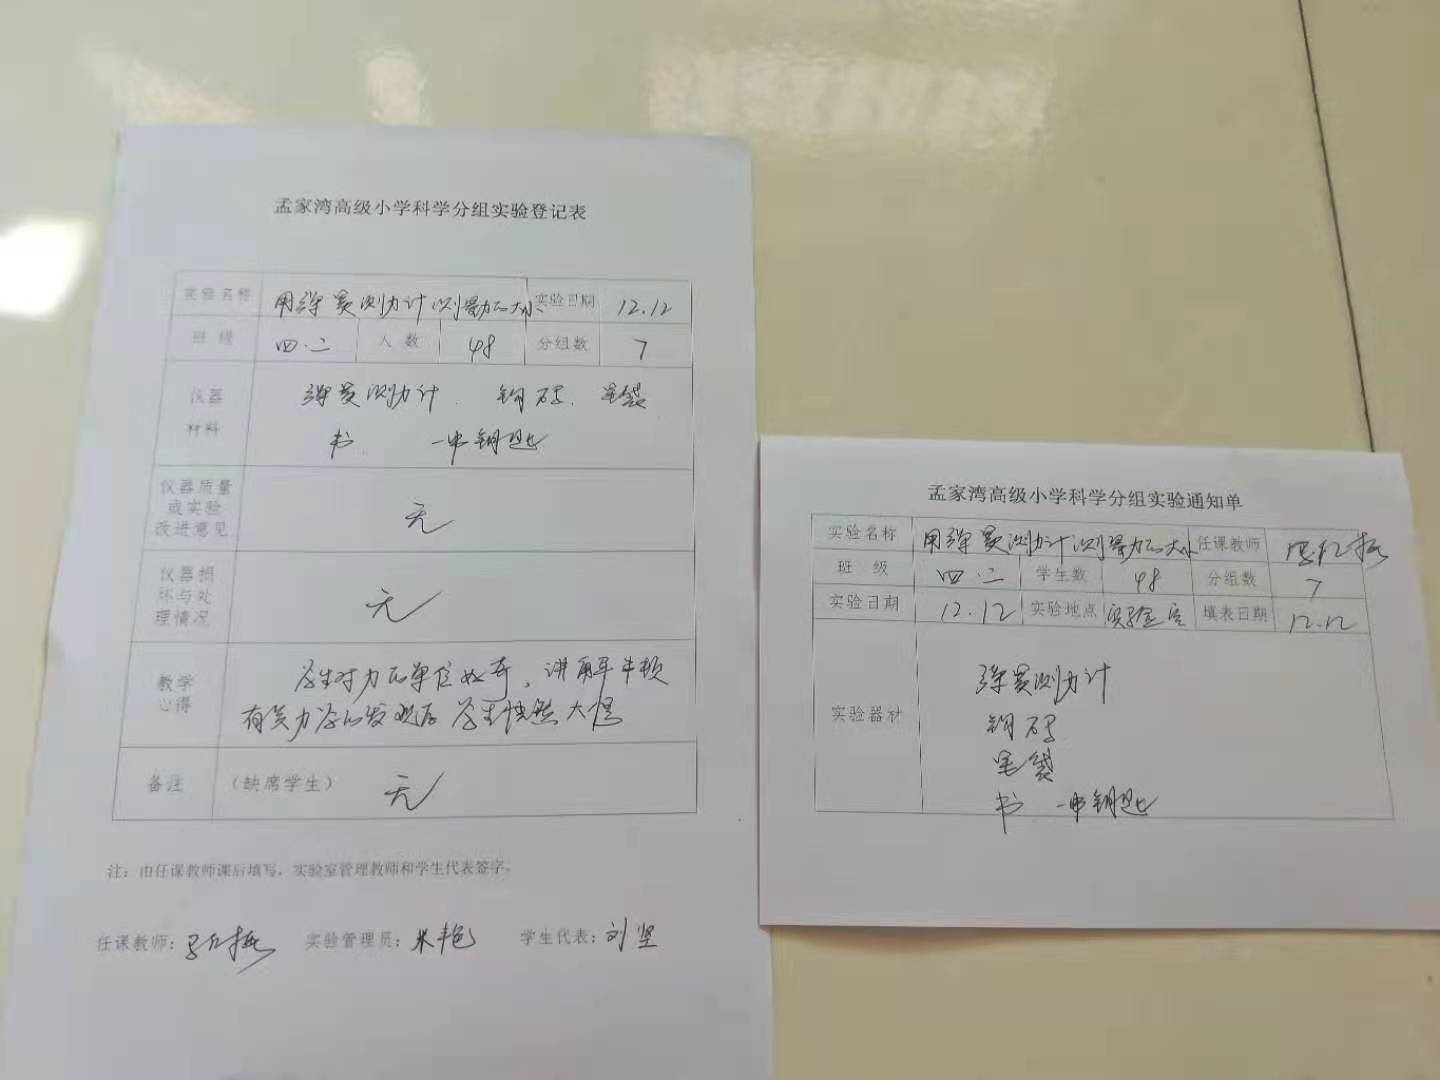 孟家湾高级小学科学分组实验登记表
实验名称 用弹簧测力计测量力的大小 实验日期 12.12
班级 四.二 人数 48 分组数 7
仪器材料 弹簧测力计. 钩码. 笔袋
书 一串钥匙
仪器质量或实验改进意见 无
仪器损坏与处理情况 无
教学心得 学生对力的单位好奇,讲解牛顿
有关力学的发现后学生恍然大悟
备注 (缺席学生) 无
注：由任课教师课后填写，实验室管理教师和学生代表签字。
任课教师： 实验管理员：米艳 学生代表：刘坚
孟家湾高级小学科学分组实验通知单
实验名称 用弹簧测力计测量力的大小 任课教师
班级 四.二 学生数 48 分组数 7
实验日期 12.12 实验地点 实验室 填表日期 12.12
实验器材 弹簧测力计
钩码
笔袋
书 一串钥匙